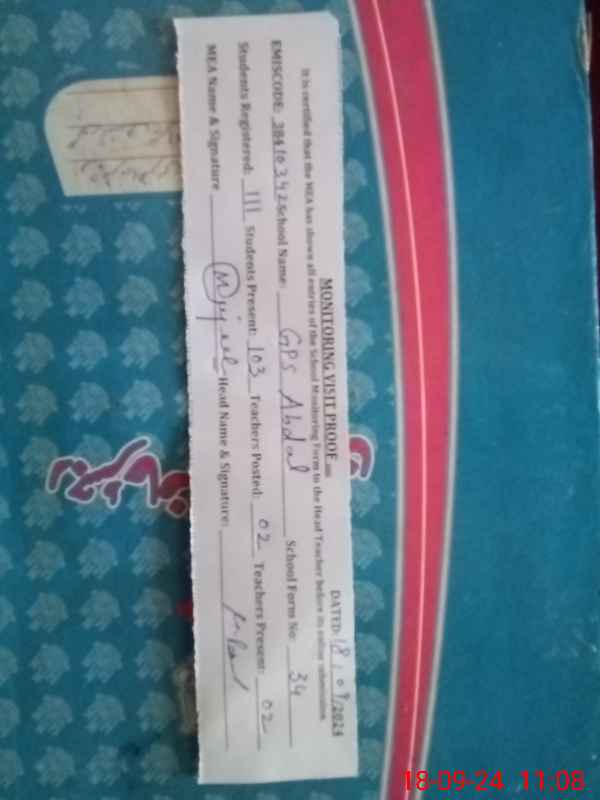 MONITORING VISIT PROOF
DATED: 18/09/2024
It is certified that the MEA has shown all entries of the School Monitoring Form to the Head Teacher before its online submission.
EMISCODE: 38410342 School Name: GPS Abdal School Form No: 34
Students Registered: 111 Students Present: 103 Teachers Posted: 02 Teachers Present: 02
MEA Name & Signature Head Name & Signature:
18-09-24 11:08